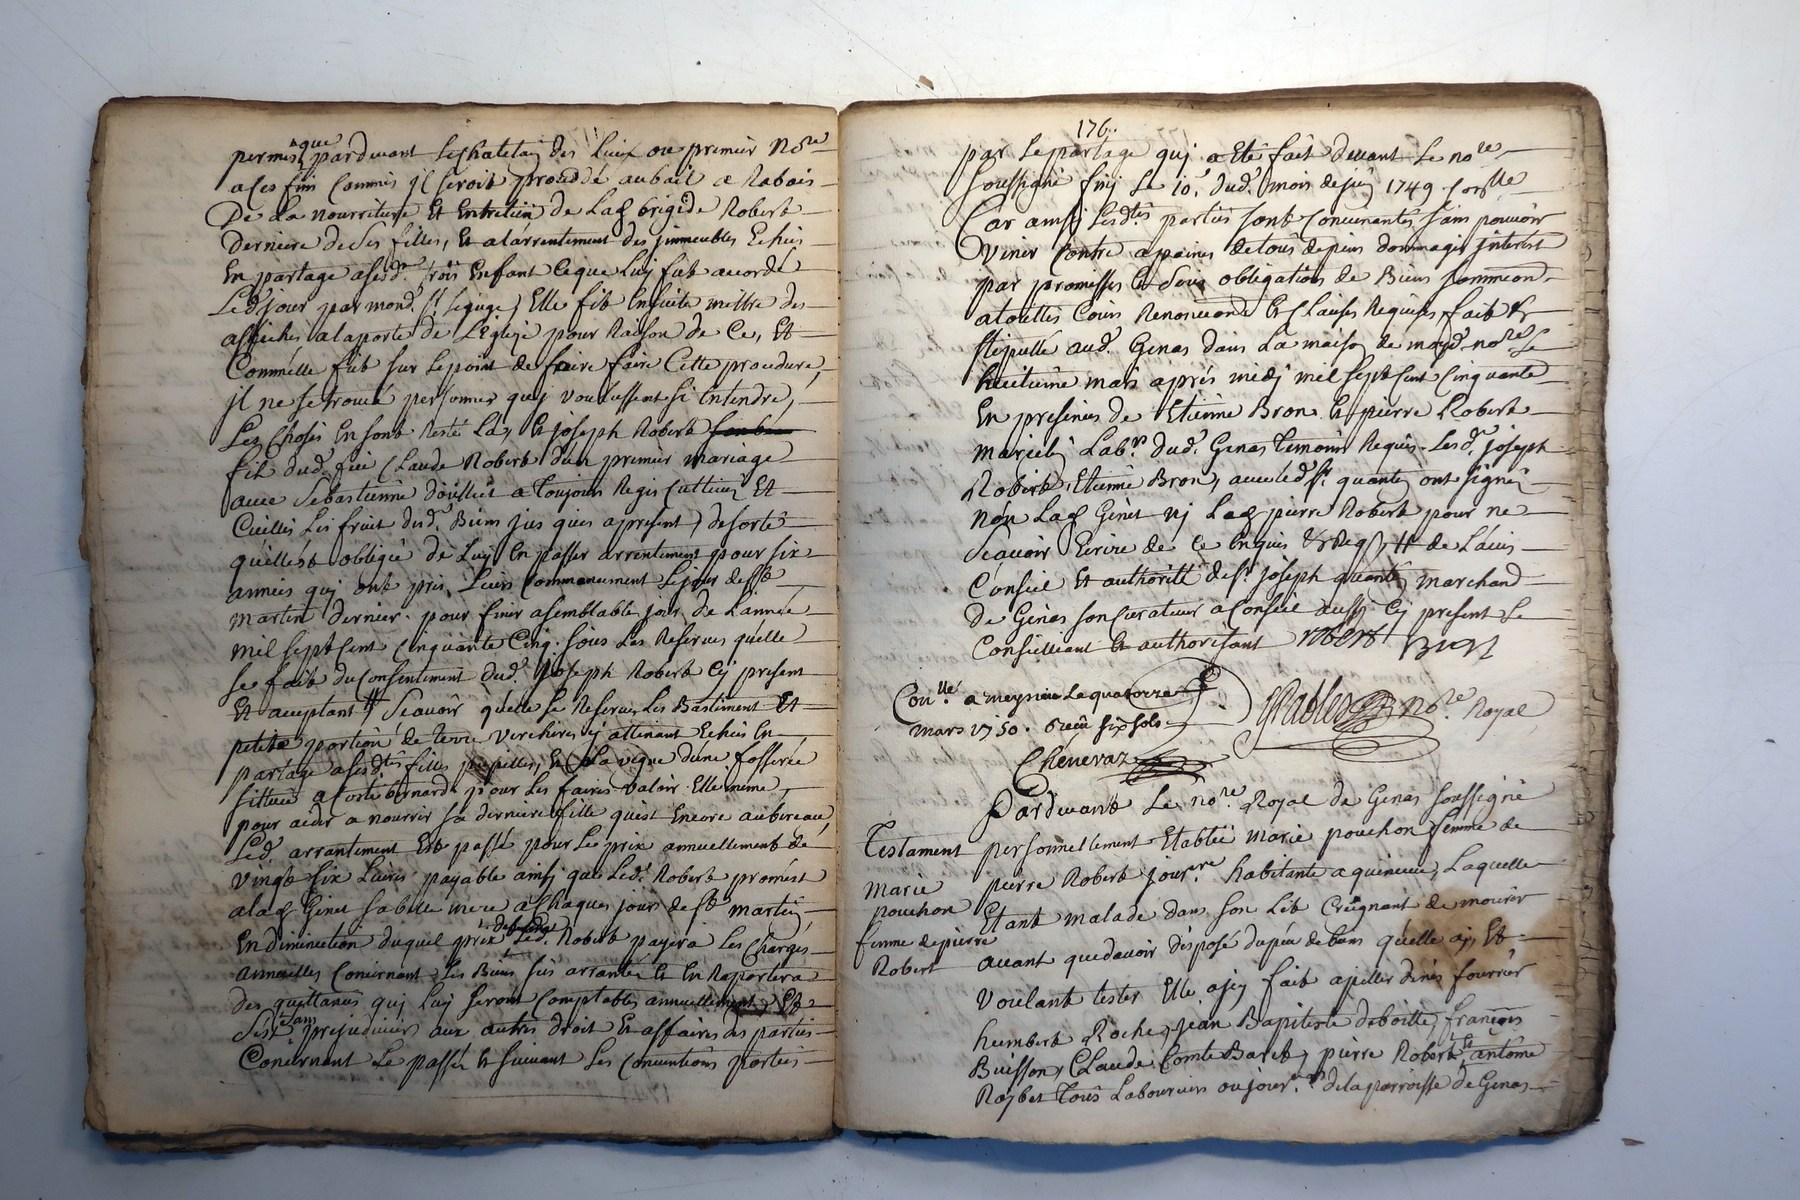 permis que pardevant le chatelain des lieux ou premier No.re
a ces fins commis il seroit procedé au bail a Rabais
De la nourriture Et Entretien de Lad brigide Robert
derniere de ses filles, Et a l'arrentement des immeubles Echeus
En partage a sesd. trois Enfant ce que luy fut accordé
Led jour par mond. Sr le juge, Elle fit Ensuite mettre des
affiches a la porte de L'Eglise pour Raison de Ce, Et
Comm'elle fut sur le point de faire faire Cette procedure,
il ne se trouva personnes quj voulussent s'i Entendre,
Les choses En sont Resté La, Et joseph Robert
fils dud. feu Claude Robert d'un premier mariage
avec Sebastienne d'oullies a Toujours Regis cultivé Et
Cueilli Les fruit desd. Biens jus ques a present, de sorte
qu'elle est obligée de Luy En passer arrentement pour six
années quj ont pris Leurs Commancement le jour de st
martin dernier pour finir a semblable jour de L'année
mil sept cent Cinquante Cinq. sous Les Reserves qu'elle
se fait du Consentement dud. Joseph Robert Cy present
Et acceptant Scavoir qu'elle se Reserve Les Bastiment Et
petite portion de terre verchere y attenant Echeus En
partage a sesd.tes filles pupilles, Et La vigne d'une fosserée
sittuée a Coste bernard pour Les faires valoir Elle meme,
pour aider a nourrir sa derniere fille qu'est Encore au bereau,
Led. arrantement Est passé pour Le prix annuellement de
vingt six Livres payable ainsj que Led. Robert promest
a lad Genet sa belle mere a Chaques jours de st martin
En diminution duquel prix Led. Robert payera Les Charges
annuelles Concernant Les Biens sus arrantés Et En Raportera
des quittances quj Luy seront Comptables annuellement, Et
prejudicier aux autres droit Et affaires des parties
Concernant Le passé Et suivant Les Conventions portées
176.
par Le partage quj a Eté fait devant Le no.re
soussigné finj Le 10.e dud. mois de 1749. Cor.llé
Car ainsj Lesd.tes parties sont Convenantes sans pouvoir
Venir Contre a peines de tous depens dommages interest
par promesses Et sous obligations de Biens
a touttes Cours Renonciations Et Clauses Requises, fait Et
stipullé aud. Genas dans La maison de moyd. no.re Le
huitieme mars aprés midj mil sept Cent Cinquante
En presences de Etienne Bron Et pierre Robert
Lab.rs dud. Genas Temoins Requis. Lesd. joseph
Robert, Etienne Bron, avec led sr. quantin ont signé
non Lad Genet nj Lad pierre Robert pour ne
Scavoir Ecrire de Ce Enquis Et Req. de L'avis
Conseil Et authorité de sr. joseph quantin marchand
de Genas son curateur a Conseil aussj Cy present Le
Conseilliant Et authorisant robert Bron
Con.llé a meyzieu Le quatorze
mars 1750. Receu six sols
Chenevaz
No.re Royal
Pardevant Le no.re Royal de Genas soussigné
Testament
personnellement Etablie marie pouchon femme de
Marie
pierre Robert jour.er habitante a quincieu, Laquelle
pouchon
Etant malade dans son Lit Creignant de mourir
femme de pierre
avant que d'avoir disposé du peu de biens qu'elle aj, Et
Robert
Voulant tester Elle aj fait apeller fourrier
humbert Roche, Jean Baptiste deboille, françois
Buisson, Claude Comte Baret, pierre Robert, Et antoine
Raybet Tous Laboureurs ou jour.ers de la parroisse de Genas